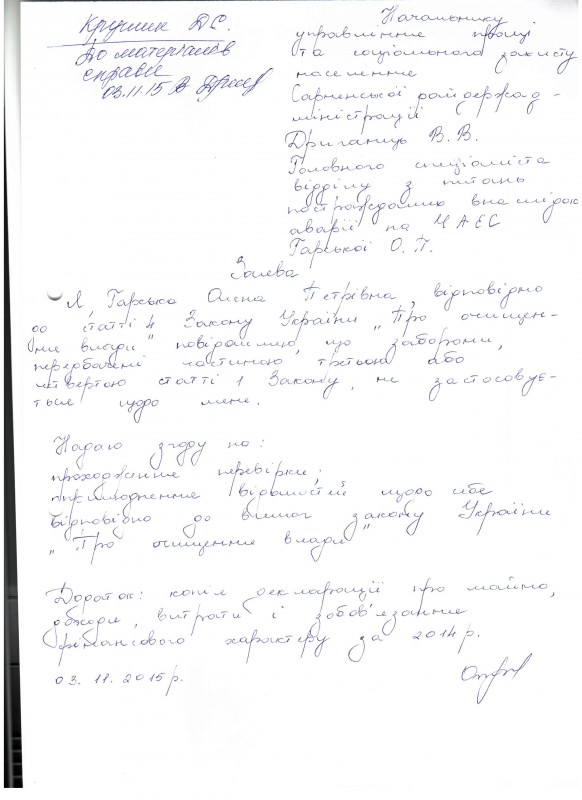 Крушик Д.С.
До матеріалів
справи
03.11.15
Начальнику
управління праці
та соціального захисту
населення
Сарненської райдержад-
міністрації
Дриганцю В.В.
Головного спеціаліста
відділу з питань
постраждалих внаслідок
аварії на ЧАЕС
Гарської О.П.
Заява
Я, Гарська Олена Петрівна, відповідно
до статті 4 Закону України „Про очищен-
ня влади" повідомляю, що заборони,
передбачені частиною третьою або
четвертою статті 1 Закону, не застосовує-
ться щодо мене.
Надаю згоду на:
проходження перевірки;
оприлюднення відомостей щодо себе
відповідно до вимог закону України
„Про очищення влади"
Додаток: копія декларації про майно,
доходи, витрати і зобов'язання
фінансового характеру за 2014 р.
03.11.2015 р.